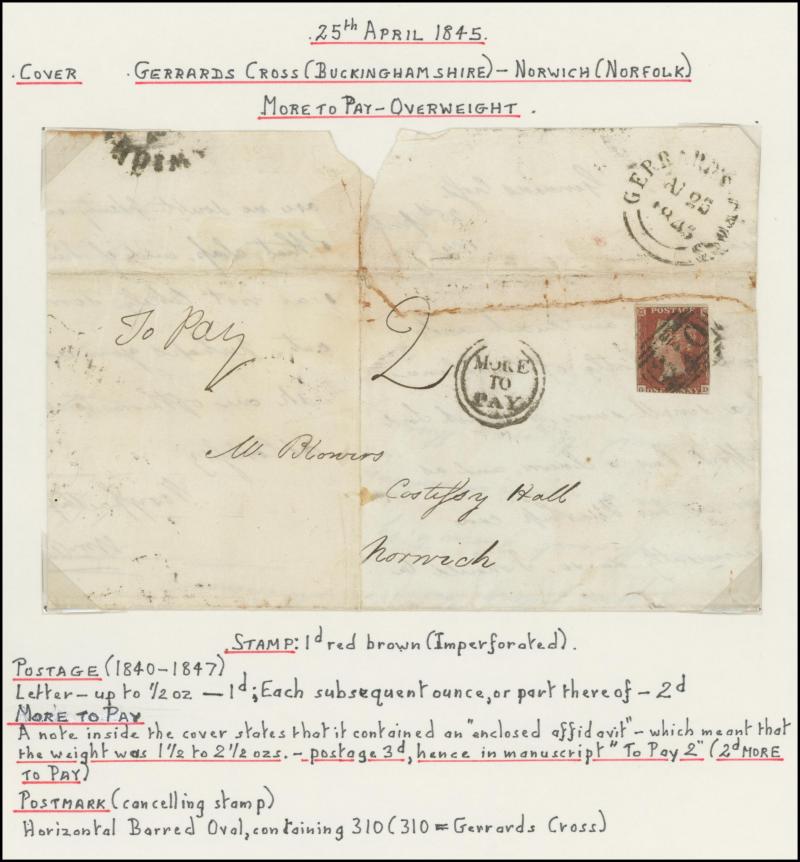 .25th APRIL 1845.
.COVER .GERRARDS CROSS (BUCKINGHAMSHIRE) – NORWICH (NORFOLK)
MORE TO PAY – OVERWEIGHT .
GERRARD'S CROSS
25
1845
To Pay 2
MORE
TO
PAY
POSTAGE
ONE PENNY
310
Mr. Blowers
Costissy Hall
Norwich
.STAMP: 1d red brown (Imperforated).
POSTAGE (1840–1847)
Letter – up to ½ oz — 1d; Each subsequent ounce, or part there of – 2d
MORE TO PAY
A note inside the cover states that it contained an "enclosed affidavit" – which meant that
the weight was 1½ to 2½ ozs. – postage 3d, hence in manuscript "To Pay 2" (2d MORE
TO PAY)
POSTMARK (cancelling stamp)
Horizontal Barred Oval, containing 310 (310 = Gerrards Cross)